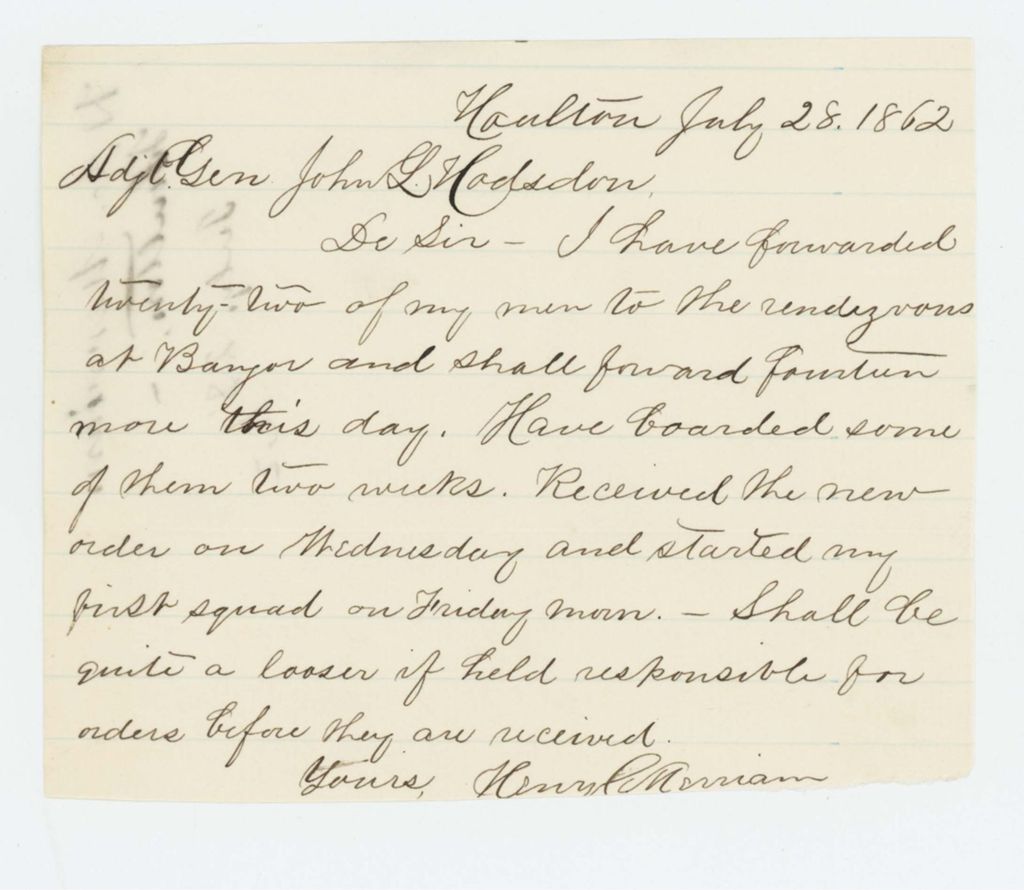 Houlton July 28. 1862
Adjt. Gen. John L. Hodsdon,
De Sir - I have forwarded
twenty-two of my men to the rendezvous
at Bangor and shall forward fourteen
more this day. Have boarded some
of them two weeks. Received the new
order on Wednesday and started my
first squad on Friday morn. - Shall be
quite a looser if held responsible for
orders before they are received.
Yours, Henry C Merriam